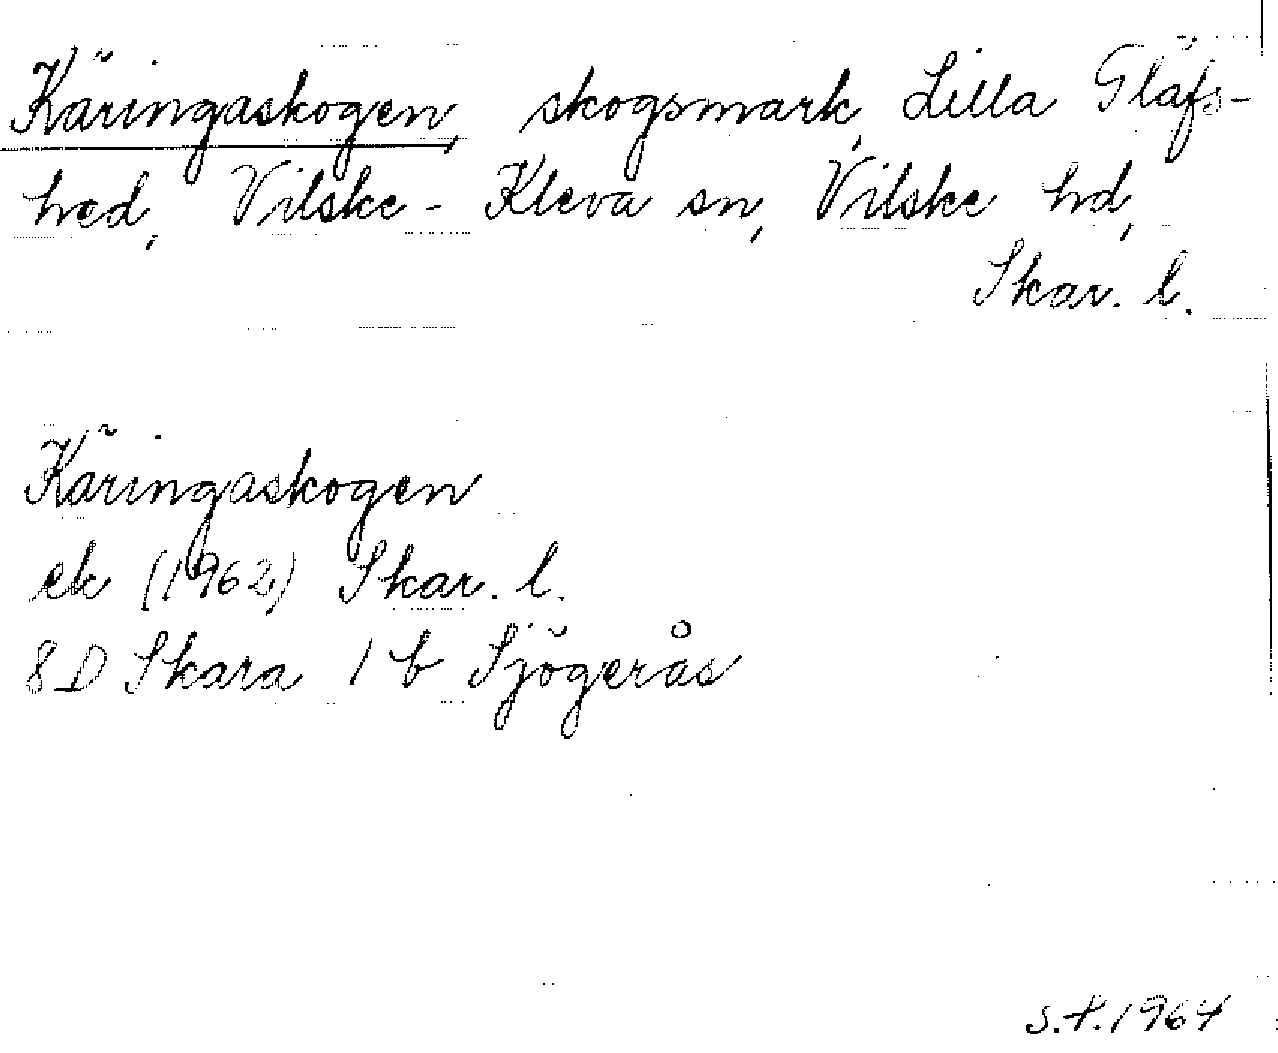 Käringaskogen, skogsmark, Lilla Gläfs-
hed, Vilske-Kleva sn, Vilske hd,
Skar. l.
Käringaskogen
ek (1962) Skar. l.
8D Skara 1 b Sjögerås
S.F. 1964